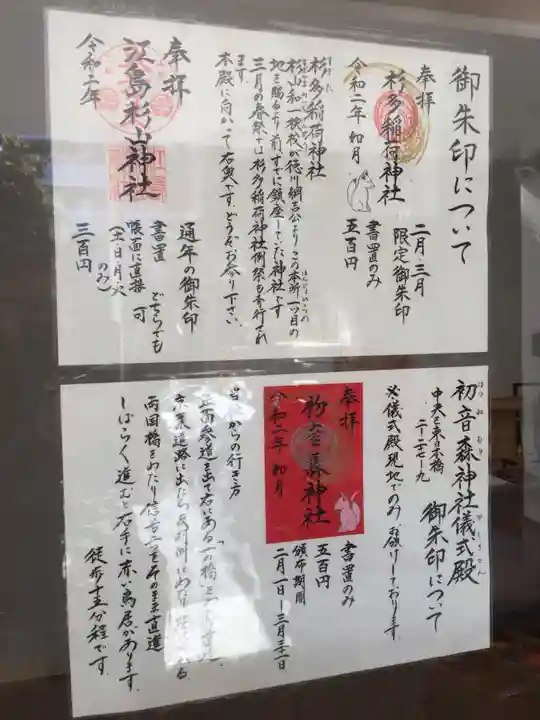 御朱印について
奉拝
杉多稲荷神社
令和二年 如月
二月・三月
限定御朱印
書置のみ
五百円
杉多稲荷神社
杉山和一検校が徳川綱吉公よりこの本所一ツ目の
地を賜るより前すでに鎮座していた神社です
三月の春祭では杉多稲荷神社例祭も斎行され
ます。
本殿に向かって右奥です。どうぞお参り下さい。
奉拝
江島杉山神社
令和二年
通年の御朱印
書置
帳面に直接 どちらでも可
(土・日・月・火のみ)
三百円
初音森神社儀式殿
中央区東日本橋
二-二七-九
御朱印について
※儀式殿現地でのみお頒けしております。
奉拝
初音森神社
令和二年 如月
書置のみ
五百円
頒布期間
二月一日〜三月三十一日
からの行き方
正面参道を出て右にある「一の橋」を
京葉道路に出たら
両国橋をわたり信号二そのまま直進
しばらく進むと右手に赤い鳥居があります。
徒歩十五分程です。